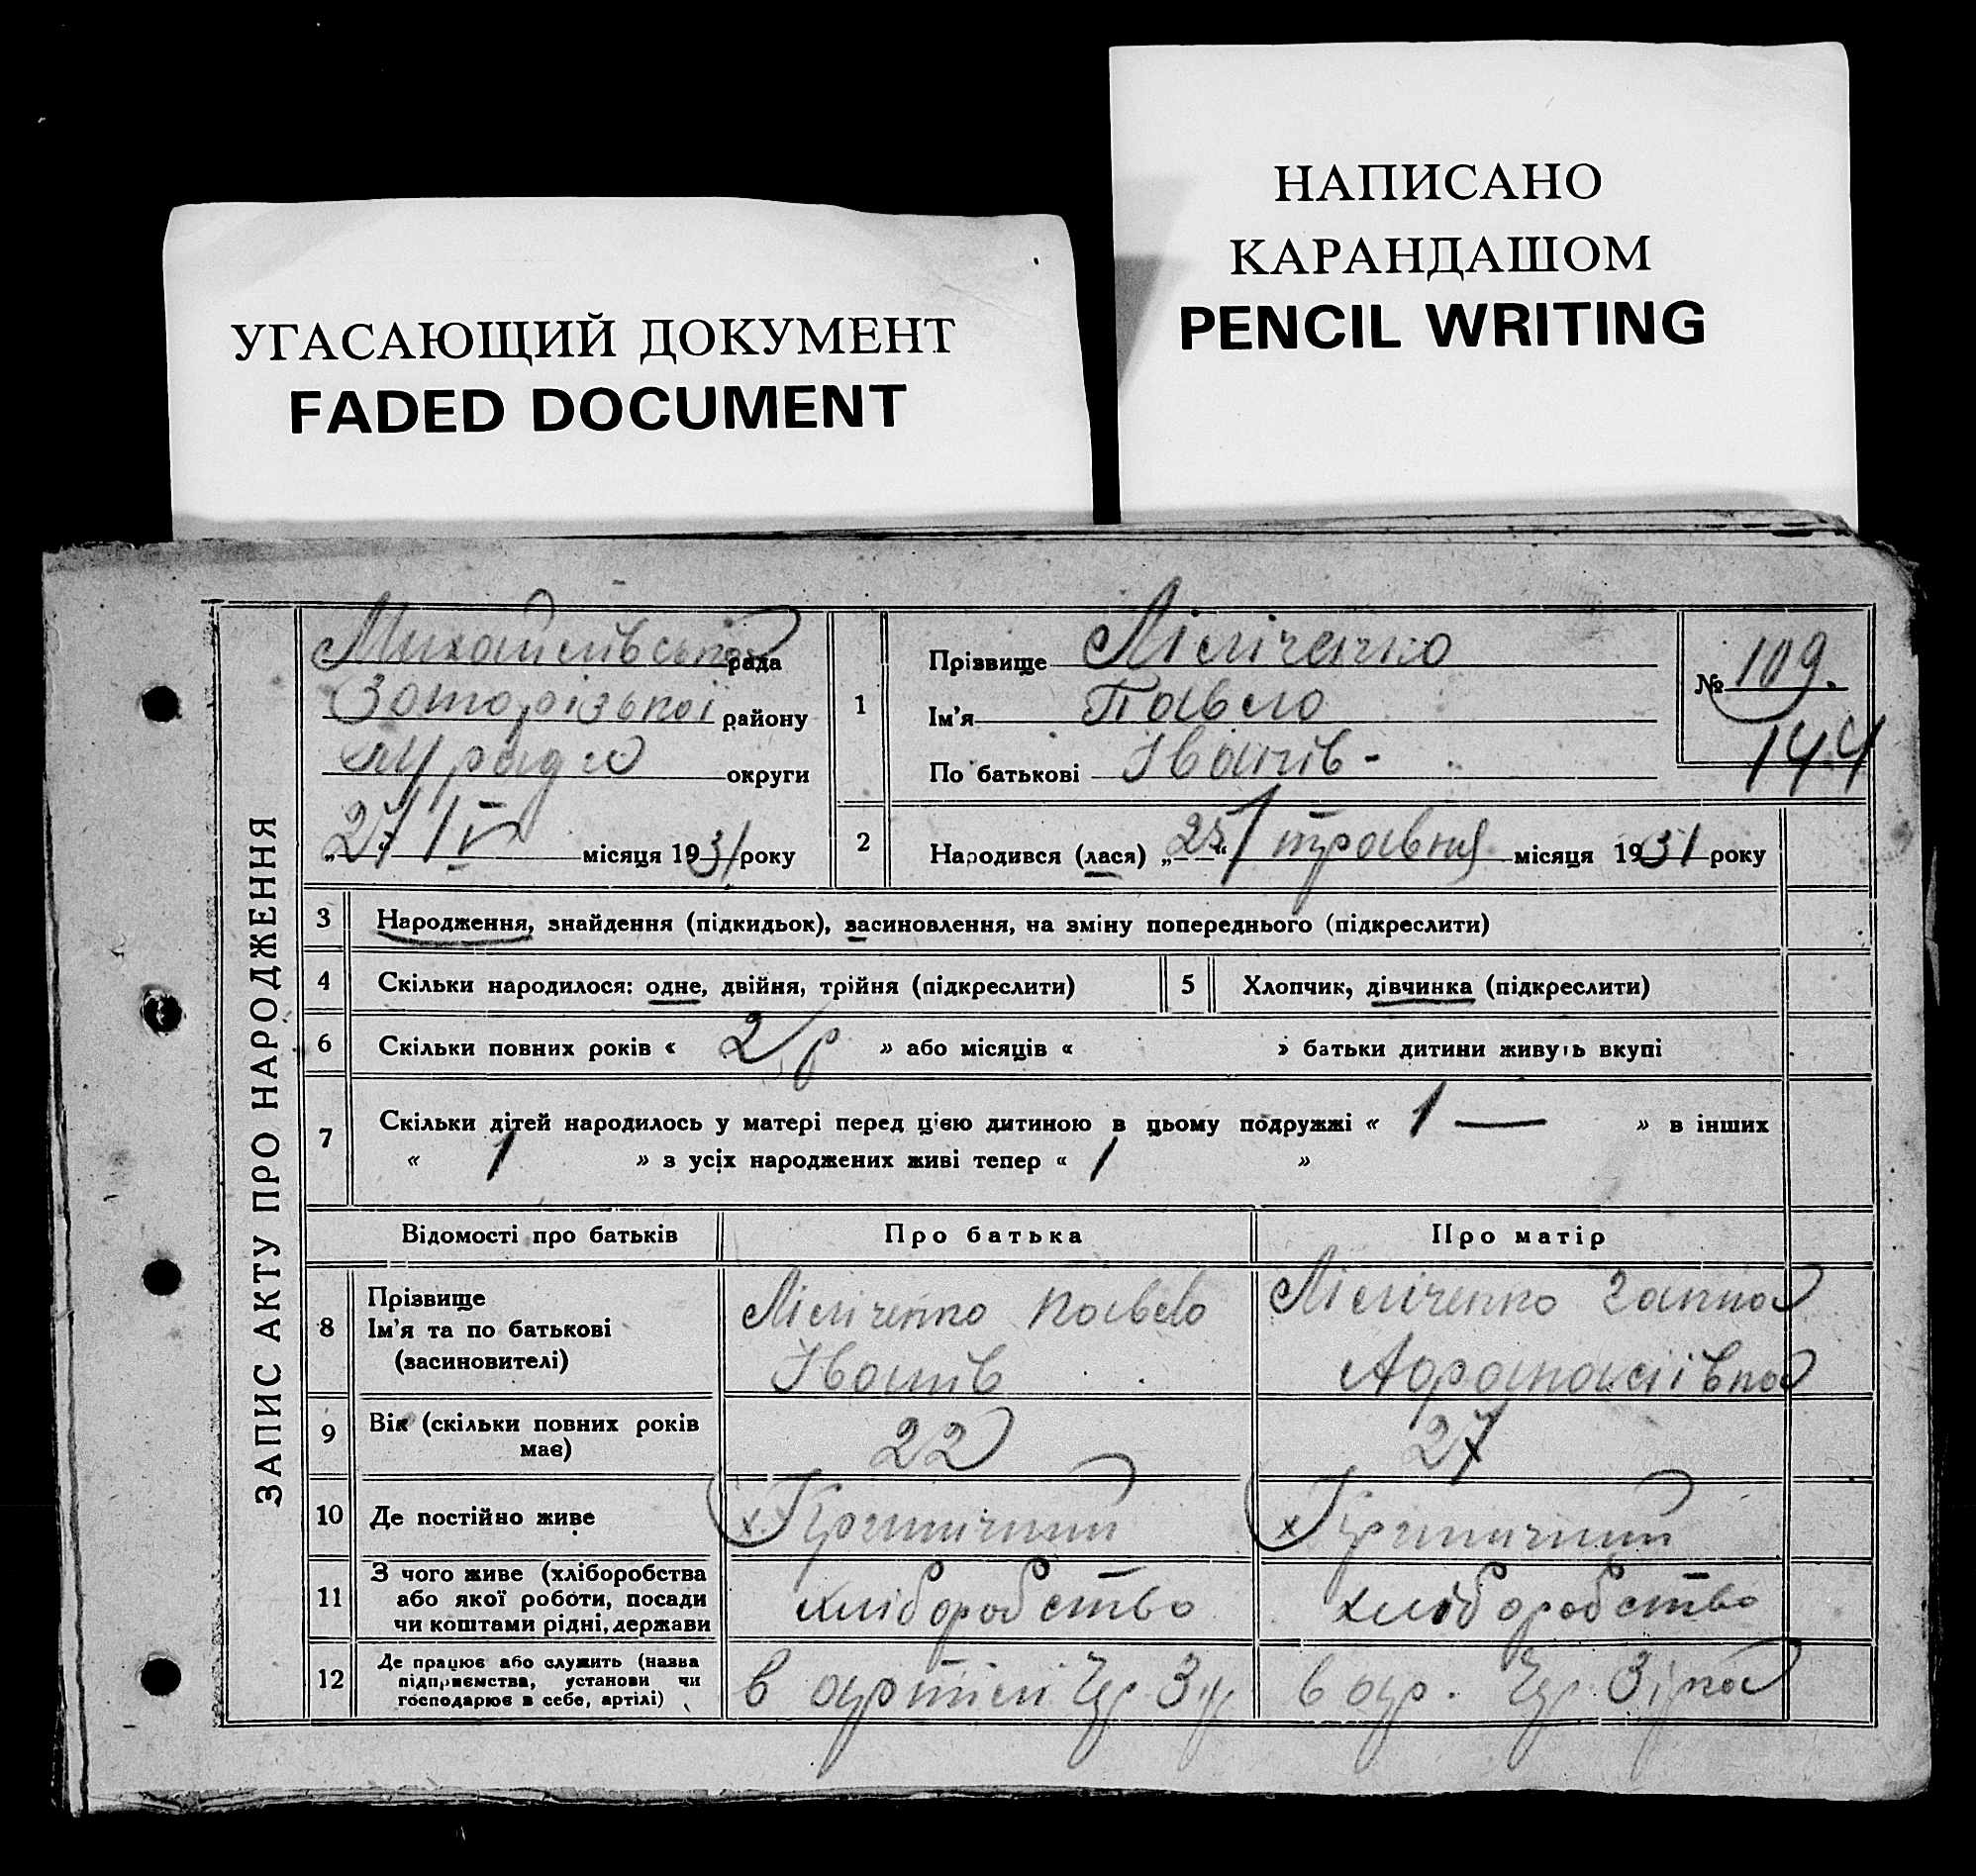 НАПИСАНО
КАРАНДАШОМ
PENCIL WRITING
УГАСАЮЩИЙ ДОКУМЕНТ
FADED DOCUMENT
ЗАПИС АКТУ ПРО НАРОДЖЕННЯ
Михайлівської рада
району
округи
„27“ IV місяця 1931 року
1
Прізвище Ліліченко
Ім'я Павло
По батькові Іванів-
№ 109.
144
2
Народився (лася) „25“ травня місяця 1931 року
3 Народження, знайдення (підкидьок), засиновлення, на зміну попереднього (підкреслити)
4 Скільки народилося: одне, двійня, трійня (підкреслити)
5 Хлопчик, дівчинка (підкреслити)
6 Скільки повних років « 2 р » або місяців « » батьки дитини живуть вкупі
7 Скільки дітей народилось у матері перед цією дитиною в цьому подружжі « 1 — » в інших
« 1 » з усіх народжених живі тепер « 1 »
Відомості про батьків
Про батька
Про матір
8
Прізвище
Ім'я та по батькові
(засиновителі)
Ліліченко Павло
Іванів
Ліліченко Ганна
Афанасіівна
9
Вік (скільки повних років
має)
22
27
10 Де постійно живе
х. Криничний
х Криничний
11
З чого живе (хліборобства
або якої роботи, посади
чи коштами рідні, держави
хліборобство
хліборобство
12
Де працює або служить (назва
підприємства, установи чи
господарює в себе, артілі)
в артілі Чр Зір
в ар. Чр. Зірка